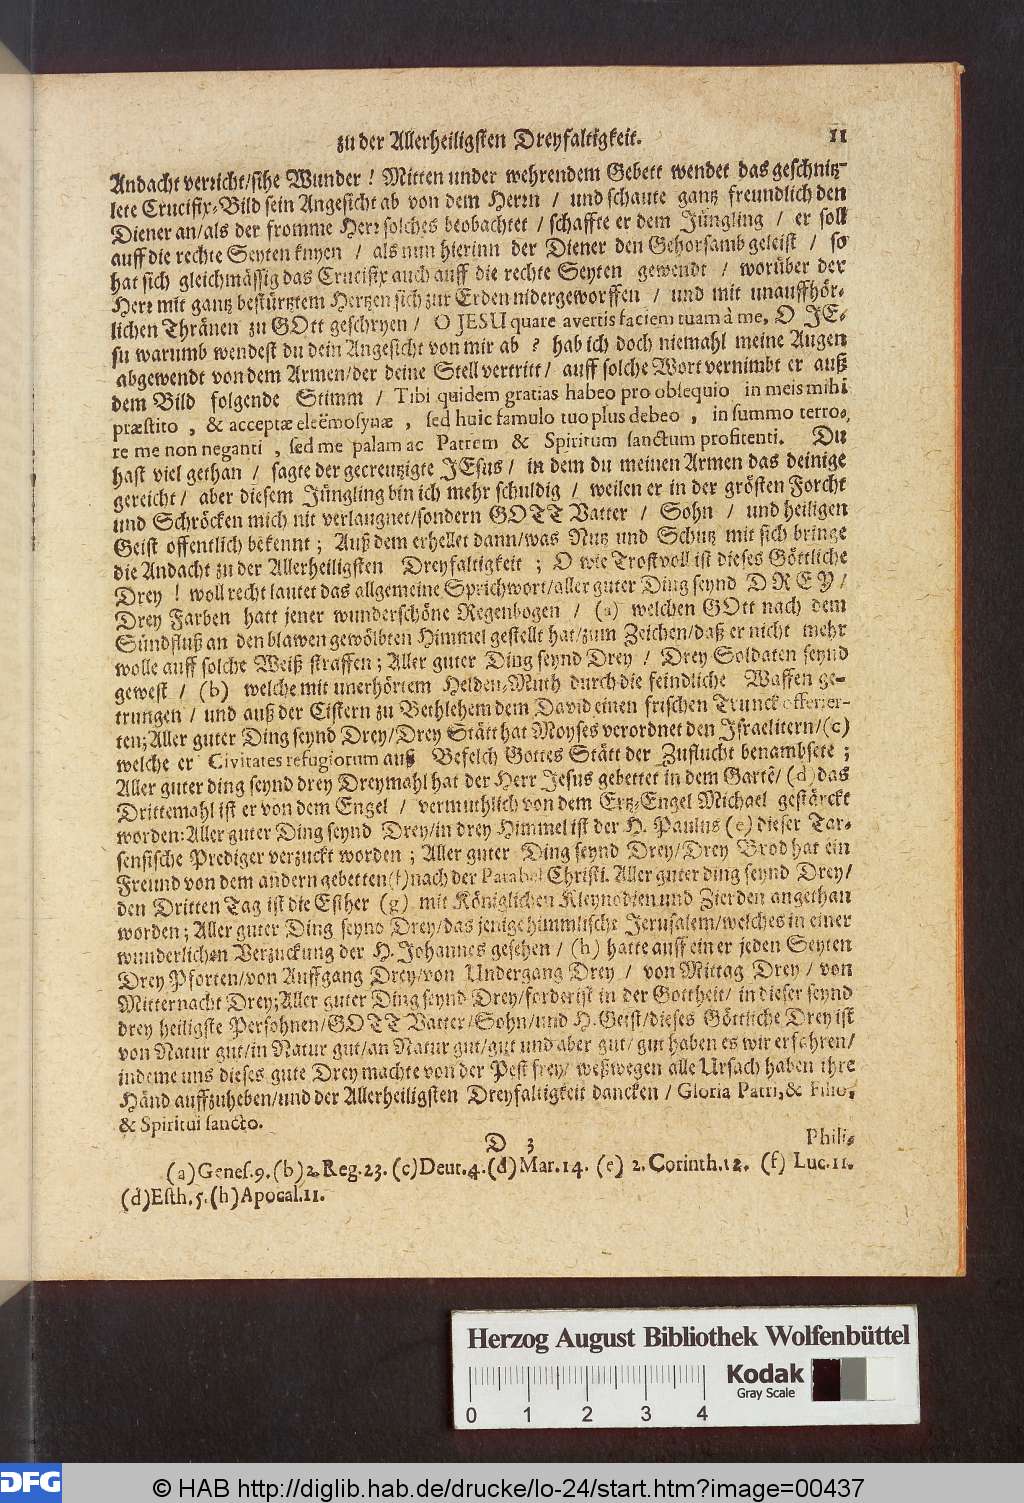 zu der Allerheiligsten Dreyfaltigkeit. 11
Andacht verricht/sihe Wunder! Mitten under wehrendem Gebett wendet das geschnitz-
lete Crucifix-Bild sein Angesicht ab von dem Herrn / und schaute gantz freundlich den
Diener an/als der fromme Herr solches beobachtet / schaffte er dem Jüngling / er soll
auff die rechte Seyten knyen / als nun hierinn der Diener den Gehorsamb geleist / so
hat sich gleichmässig das Crucifix auch auff die rechte Seyten gewendt / worüber der
Herr mit gantz bestürtztem Hertzen sich zur Erden nidergeworffen / und mit unauffhör-
lichen Thränen zu GOtt geschryen / O JESU quare avertis faciem tuam â me, O JE-
su warumb wendest du dein Angesicht von mir ab ? hab ich doch niemahl meine Augen
abgewendt von dem Armen/der deine Stell vertritt/ auff solche Wort vernimbt er auß
dem Bild folgende Stimm / Tibi quidem gratias habeo pro obsequio in meis mihi
præstito , & acceptæ eleëmosynæ , sed huic famulo tuo plus debeo , in summo terro-
re me non neganti , sed me palam ac Patrem & Spiritum sanctum profitenti. Du
hast viel gethan / sagte der gecreutzigte JEsus / in dem du meinen Armen das deinige
gereicht / aber diesem Jüngling bin ich mehr schuldig / weilen er in der grösten Forcht
und Schröcken mich nit verlaugnet/sondern GOTT Vatter / Sohn / und heiligen
Geist offentlich bekennt ; Auß dem erhellet dann/was Nutz und Schutz mit sich bringe
die Andacht zu der Allerheiligsten Dreyfaltigkeit ; O wie Trostvoll ist dieses Göttliche
Drey ! woll recht lautet das allgemeine Sprichwort/aller guter Ding seynd DREY /
Drey Farben hatt jener wunderschöne Regenbogen / (a) welchen GOtt nach dem
Sündfluß an den blawen gewölbten Himmel gestellt hat/zum Zeichen/daß er nicht mehr
wolle auff solche Weiß straffen ; Aller guter Ding seynd Drey / Drey Soldaten seynd
gewest / (b) welche mit unerhörtem Helden-Muth durch die feindliche Waffen ge-
trungen / und auß der Cistern zu Bethlehem dem David einen frischen Trunck offerier-
ten; Aller guter Ding seynd Drey/Drey Stätt hat Moyses verordnet den Israelitern/(c)
welche er Civitates refugiorum auß Befelch Gottes Stätt der Zuflucht benambsete ;
Aller guter ding seynd drey Dreymahl hat der Herr Jesus gebettet in dem Gartē/ (d) das
Drittemahl ist er von dem Engel / vermuthlich von dem Ertz-Engel Michael gestärckt
worden: Aller guter Ding seynd Drey/in drey Himmel ist der H. Paulus (e) dieser Tar-
sensische Prediger verzuckt worden ; Aller guter Ding seynd Drey/Drey Brod hat ein
Freund von dem andern gebetten (f) nach der Parabel Christi. Aller guter ding seynd Drey/
den Dritten Tag ist die Esther (g) mit Königlichen Kleynodien und Zierden angethan
worden ; Aller guter Ding seynd Drey/das jenige himmlische Jerusalem/welches in einer
wunderlichen Verzuckung der H. Johannes gesehen / (h) hatte auff einer jeden Seyten
Drey Pforten/von Auffgang Drey/von Undergang Drey / von Mittag Drey / von
Mitternacht Drey; Aller guter Ding seynd Drey/forderist in der Gottheit/ in dieser seynd
drey heiligste Persohnen/GOTT Vatter/Sohn/und H. Geist/dieses Göttliche Drey ist
von Natur gut/in Natur gut/an Natur gut/gut und aber gut/ gut haben es wir erfahren/
indeme uns dieses gute Drey machte von der Pest frey/ weßwegen alle Ursach haben ihre
Händ auffzuheben/und der Allerheiligsten Dreyfaltigkeit dancken / Gloria Patri, & Filio,
& Spiritui sancto.
D 3 Phili-
(a) Genes. 9. (b) 2. Reg. 23. (c) Deut. 4. (d) Mar. 14. (e) 2. Corinth. 12. (f) Luc. 11.
(d) Esth. 5. (h) Apocal. 11.
Herzog August Bibliothek Wolfenbüttel
Kodak
Gray Scale
0 1 2 3 4
DFG © HAB http://diglib.hab.de/drucke/lo-24/start.htm?image=00437